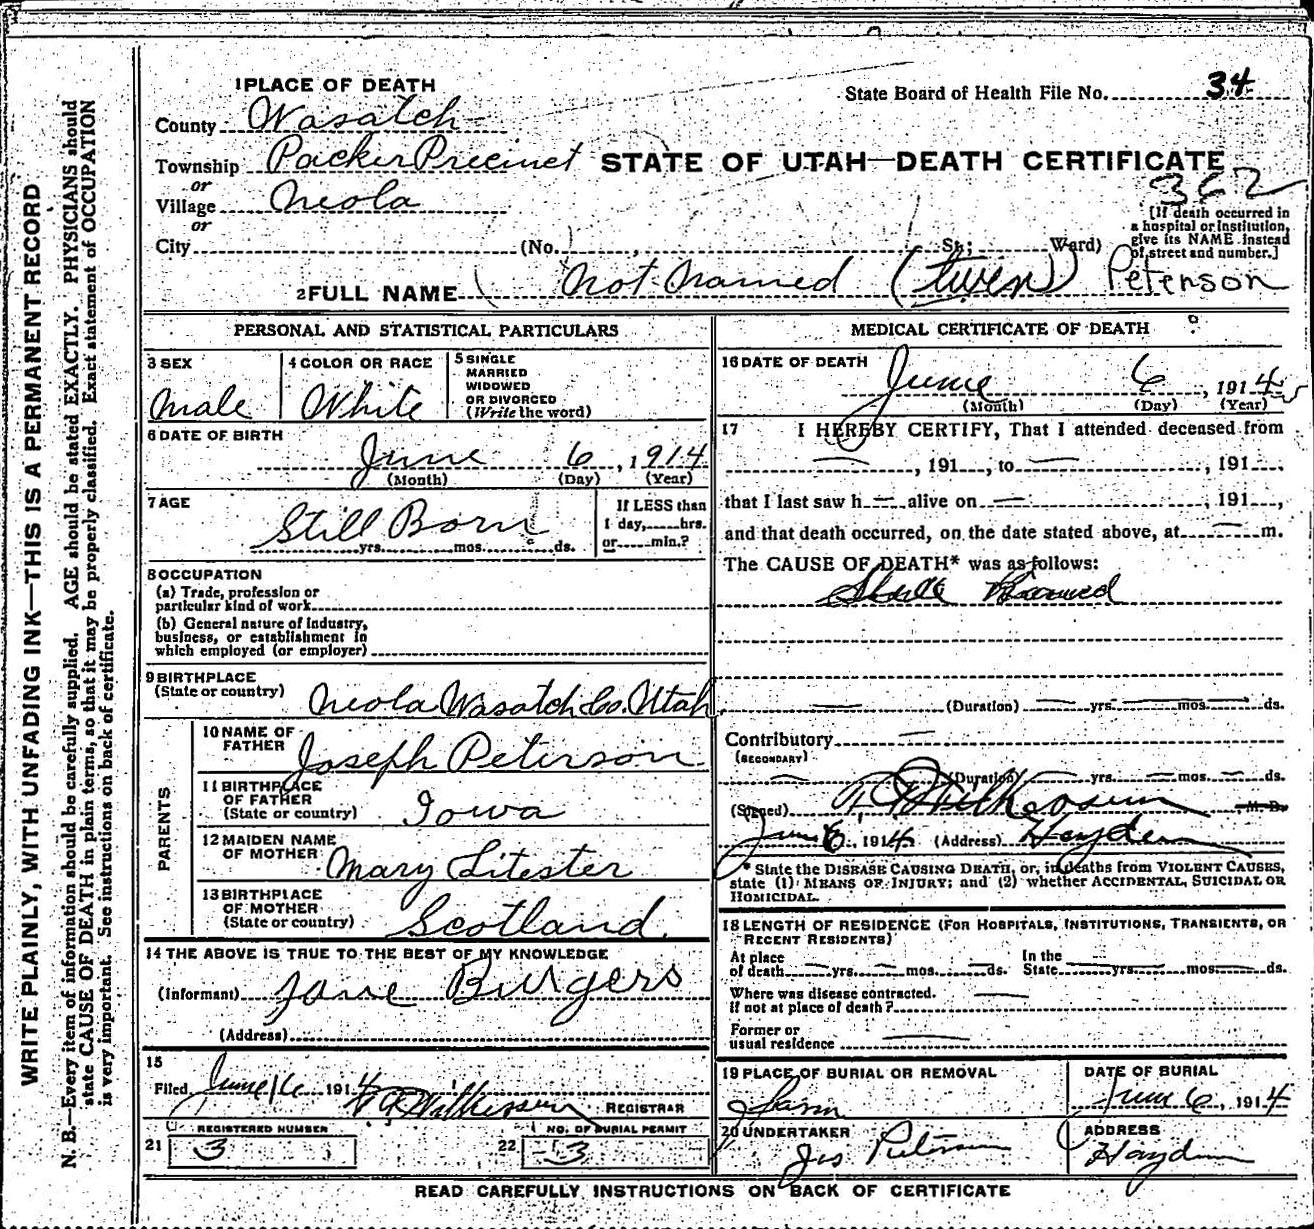 1 PLACE OF DEATH
County Wasatch
State Board of Health File No. 34
Township Packer Precinct
STATE OF UTAH—DEATH CERTIFICATE
362
or
Village Neola
or
City (No. , St; Ward)
[If death occurred in a hospital or institution, give its NAME instead of street and number.]
2 FULL NAME Not Named (twin) Peterson
PERSONAL AND STATISTICAL PARTICULARS
3 SEX
Male
4 COLOR OR RACE
White
5 SINGLE
MARRIED
WIDOWED
OR DIVORCED
(Write the word)
6 DATE OF BIRTH
June 6, 1914
(Month) (Day) (Year)
7 AGE
Still Born
yrs. mos. ds.
If LESS than
1 day, hrs.
or min.?
8 OCCUPATION
(a) Trade, profession or
particular kind of work
(b) General nature of industry,
business, or establishment in
which employed (or employer)
9 BIRTHPLACE
(State or country) Neola Wasatch Co. Utah
PARENTS
10 NAME OF
FATHER Joseph Peterson
11 BIRTHPLACE
OF FATHER
(State or country) Iowa
12 MAIDEN NAME
OF MOTHER Mary Litester
13 BIRTHPLACE
OF MOTHER
(State or country) Scotland.
14 THE ABOVE IS TRUE TO THE BEST OF MY KNOWLEDGE
(Informant) Jane Burgers
(Address)
15
Filed June 16 1914 Wilkerson REGISTRAR
REGISTERED NUMBER
21 3
NO. OF BURIAL PERMIT
22 3
MEDICAL CERTIFICATE OF DEATH
16 DATE OF DEATH
June 6, 1914
(Month) (Day) (Year)
17 I HEREBY CERTIFY, That I attended deceased from
— , 191 , to — , 191 ,
that I last saw h — alive on — , 191 ,
and that death occurred, on the date stated above, at — m.
The CAUSE OF DEATH* was as follows:
Still Borned
— (Duration) — yrs — mos. — ds.
Contributory —
(SECONDARY)
— (Duration) — yrs. — mos. — ds.
(Signed) Wilkerson M. D.
June 6, 1914 (Address) Hayden
* State the DISEASE CAUSING DEATH, or, in deaths from VIOLENT CAUSES,
state (1) MEANS OF INJURY; and (2) whether ACCIDENTAL, SUICIDAL OR
HOMICIDAL.
18 LENGTH OF RESIDENCE (FOR HOSPITALS, INSTITUTIONS, TRANSIENTS, OR
RECENT RESIDENTS)
At place
of death — yrs. — mos. — ds.
In the
State — yrs. — mos. — ds.
Where was disease contracted.
if not at place of death? —
Former or
usual residence —
19 PLACE OF BURIAL OR REMOVAL
Farm
DATE OF BURIAL
June 6, 1914
20 UNDERTAKER
Jos Peterson
ADDRESS
Hayden
READ CAREFULLY INSTRUCTIONS ON BACK OF CERTIFICATE
WRITE PLAINLY, WITH UNFADING INK—THIS IS A PERMANENT RECORD
N. B.—Every item of information should be carefully supplied. AGE should be stated EXACTLY. PHYSICIANS should
state CAUSE OF DEATH in plain terms, so that it may be properly classified. Exact statement of OCCUPATION
is very important. See instructions on back of certificate.